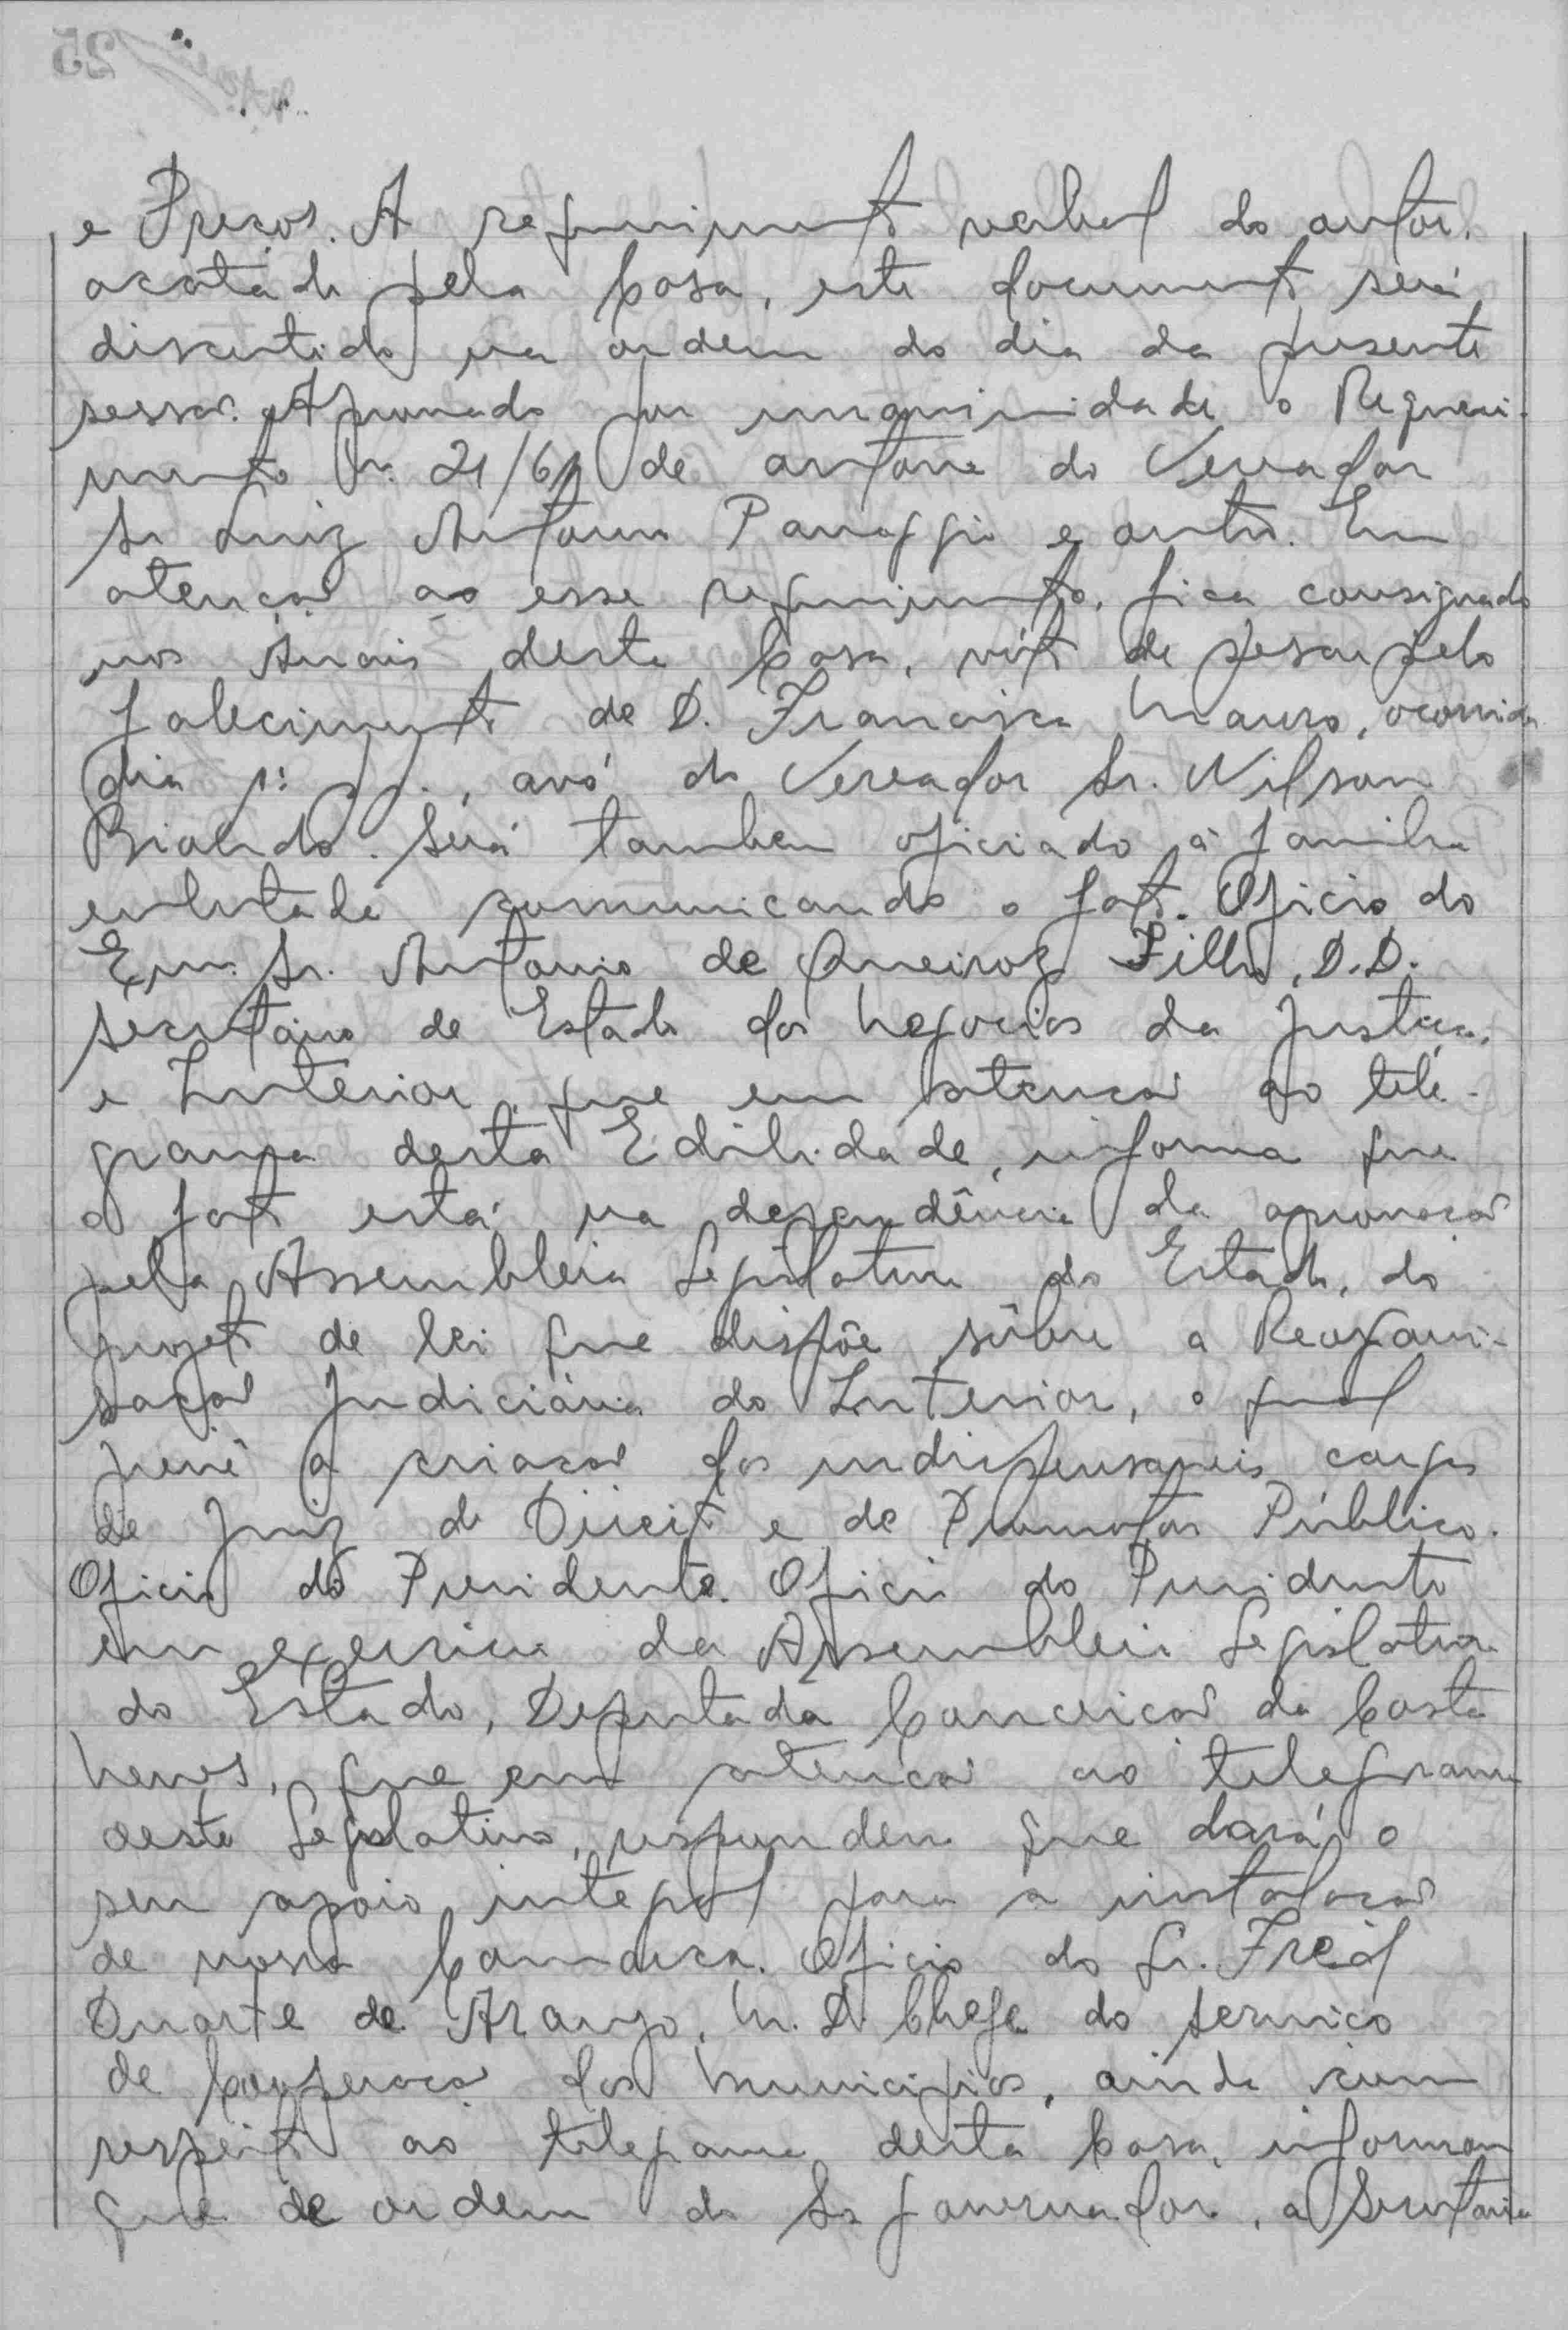 e Preços. A requerimento verbal do autor,
acatado pela Casa, este documento será
discutido na ordem do dia da presente
sessão. Aprovado por unanimidade o Requeri-
mento n. 21/61 de autoria do Vereador
Sr Luiz Antonio e outro. Em
atenção ao esse requerimento, fica consignado
nos Anais desta Casa, vóto de pesar pelo
falecimento de D. Francisca Mauro, ocorrido
dia 1º p.p., avó do Vereador Sr. Nilson
Será tambem oficiado à familia
enlutada comunicando o fato. Oficio do
Exmo. Sr. Antonio de Queiroz Filho, D.D.
Secretário de Estado dos Negocios da Justiça,
e Interior, que em atenção ao tele-
grama desta Edilidade, informa que
o fato está na dependência da aprovação
pela Assembleia Legislativa do Estado, do
projeto de lei que dispõe sôbre a Reorgani-
sação Judiciária do Interior, o qual
prevê a criação dos indispensaveis cargos
de Juiz de Direito e de Promotor Público.
Oficio do Presidente. Oficio do Presidente
em exercicio da Assembleia Legislativa
do Estado, Deputada Conceição da Costa
Neves, que em atenção ao telegrama
deste Legislativo, respondeu que dará o
seu apoio integral para a instalação
de nossa Comarca. Oficio do Sr. Fred
Duarte de Araujo, M. D. Chefe do Serviço
de Cooperação dos Municipios, ainda com
respeito ao telegrama desta Casa, informou
que de ordem do Sr Governador, a Secretaria
25